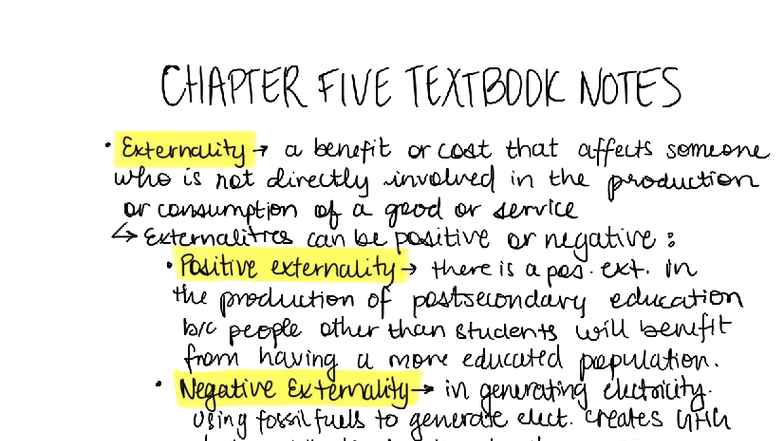 CHAPTER FIVE TEXTBOOK NOTES
• Externality → a benefit or cost that affects someone
who is not directly involved in the production
or consumption of a good or service
↳ Externalities can be positive or negative:
• Positive externality → there is a pos. ext. in
the production of postsecondary education
b/c people other than students will benefit
from having a more educated population.
• Negative Externality → in generating electricity.
Using fossil fuels to generate elect. creates